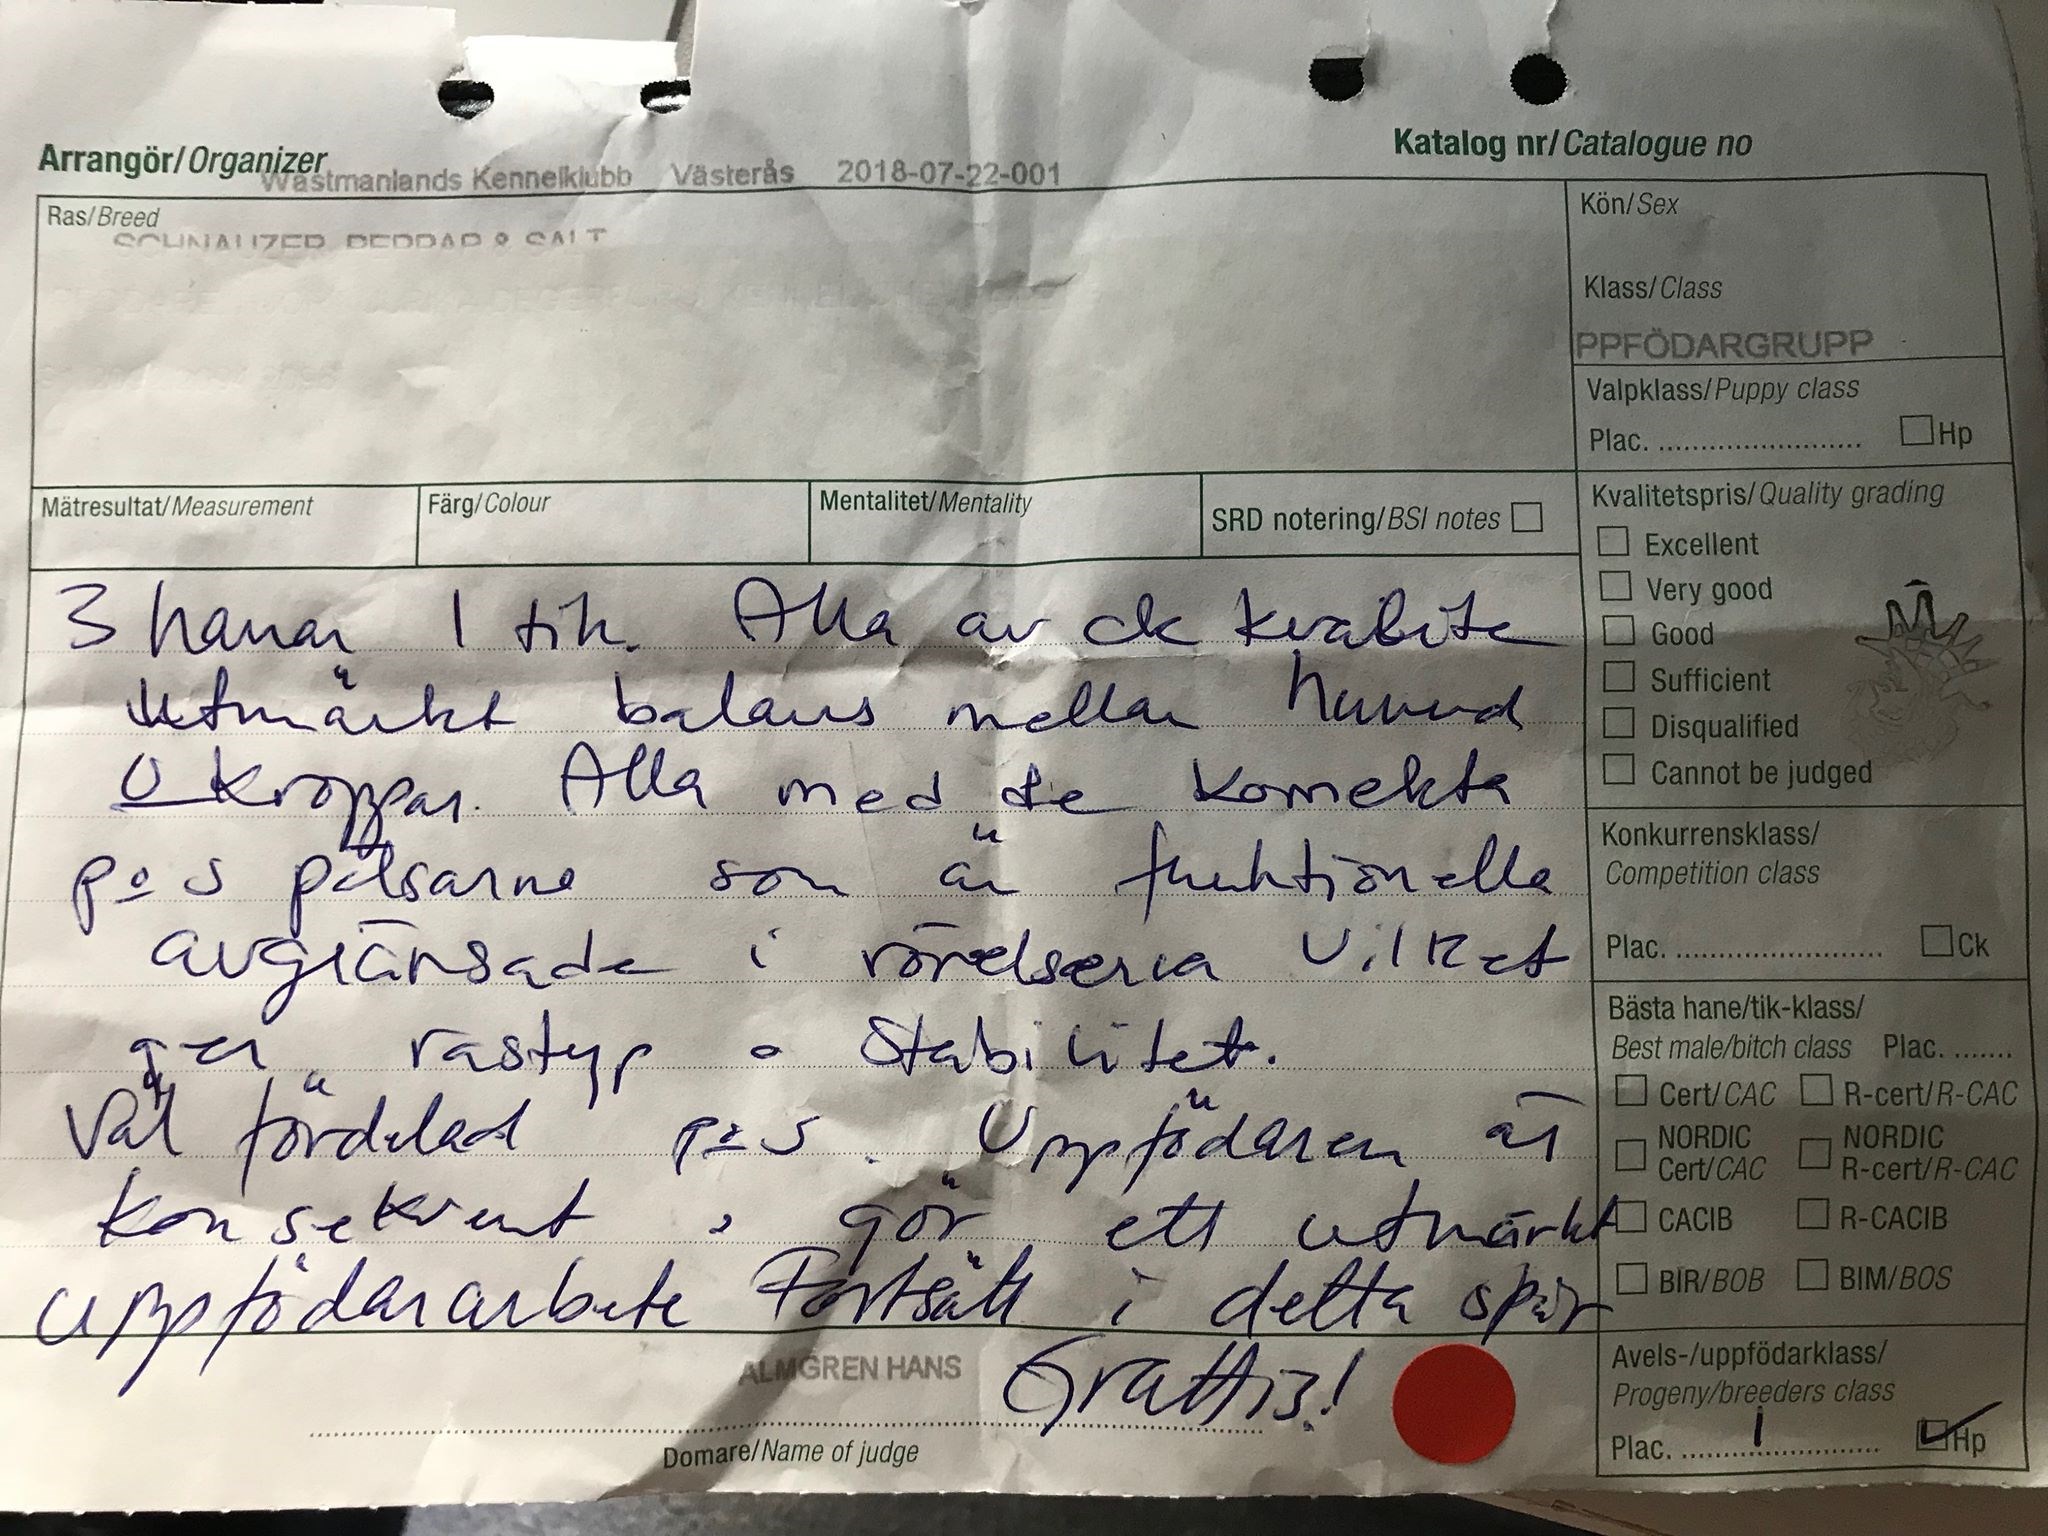 Arrangör/Organizer
Wästmanlands Kennelklubb Västerås 2018-07-22-001
Katalog nr/Catalogue no
Ras/Breed
SCHNAUZER, PEPPAR & SALT
Kön/Sex
Klass/Class
PPFÖDARGRUPP
Valpklass/Puppy class
Plac. ........................ Hp
Mätresultat/Measurement
Färg/Colour
Mentalitet/Mentality
SRD notering/BSI notes
Kvalitetspris/Quality grading
Excellent
Very good
Good
Sufficient
Disqualified
Cannot be judged
Konkurrensklass/
Competition class
Plac. ........................ Ck
Bästa hane/tik-klass/
Best male/bitch class Plac. .......
Cert/CAC R-cert/R-CAC
NORDIC Cert/CAC NORDIC R-cert/R-CAC
CACIB R-CACIB
BIR/BOB BIM/BOS
Avels-/uppfödarklass/
Progeny/breeders class
Plac. ..........1.............. Hp
3 hanar 1 tik. Alla av ck kvalite
Utmärkt balans mellan huvud
o kroppar. Alla med de korrekta
p o s pälsarna som är funktionella
avgränsade i rörelserna vilket
ger rastyp o stabilitet.
Väl fördelad p o s. Uppfödaren är
konsekvent o gör ett utmärkt
uppfödararbete Fortsätt i detta spår
Grattis!
ALMGREN HANS
Domare/Name of judge